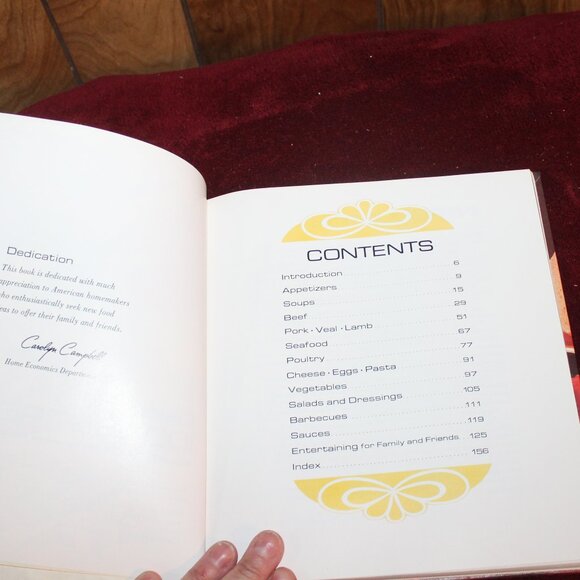 Dedication
This book is dedicated with much
appreciation to American homemakers
who enthusiastically seek new food
to offer their family and friends.
Carolyn Campbell
Home Economics
CONTENTS
Introduction 6
Appetizers 9
Soups 15
Beef 29
Pork · Veal · Lamb 51
Seafood 67
Poultry 77
Cheese · Eggs · Pasta 91
Vegetables 97
Salads and Dressings 105
Barbecues 111
Sauces 119
Entertaining for Family and Friends 125
Index 156